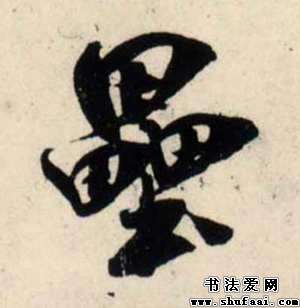 壘
书法爱网
www.shufaai.com